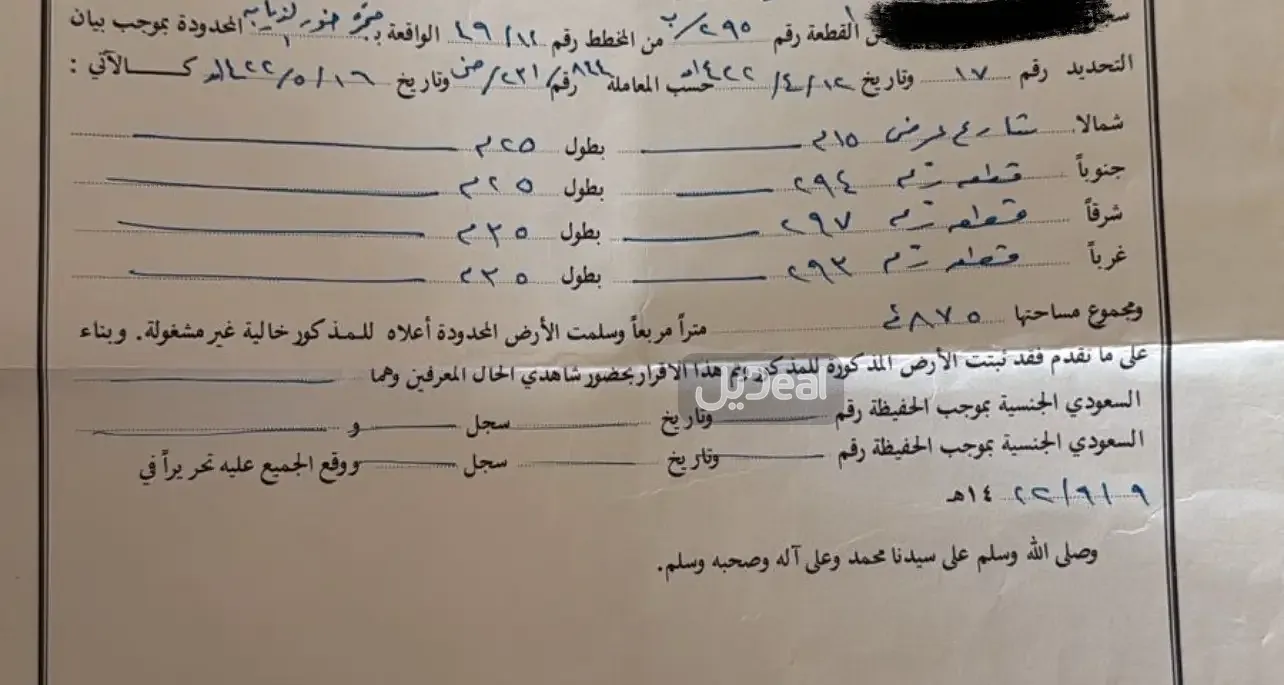 القطعة رقم ٢٩٥/ب من المخطط رقم ٤٩/١٢ الواقعة المحدودة بموجب بيان
التحديد رقم ١٧ وتاريخ ١٤٢٢/٤/١٢هـ حسب المعاملة رقم وتاريخ ١٤٢٢/٥/١٦هـ كالآتي :
شمالا شارع عرض ١٥م بطول ٢٥م
جنوباً قطعه رقم ٢٩٤ بطول ٢٥م
شرقاً قطعه رقم ٢٩٧ بطول ٣٥م
غرباً قطعه رقم ٢٩٣ بطول ٣٥م
ومجموع مساحتها ٨٧٥م متراً مربعاً وسلمت الأرض المحدودة أعلاه للمذكور خالية غير مشغولة. وبناء
على ما تقدم فقد ثبتت الأرض المذكورة للمذكور وتم هذا الاقرار بحضور شاهدي الحال المعرفين وهما
السعودي الجنسية بموجب الحفيظة رقم وتاريخ سجل و
السعودي الجنسية بموجب الحفيظة رقم وتاريخ سجل ووقع الجميع عليه تحريراً في
٩/٩/٢٢ ١٤هـ
وصلى الله وسلم على سيدنا محمد وعلى آله وصحبه وسلم.
ديل deal